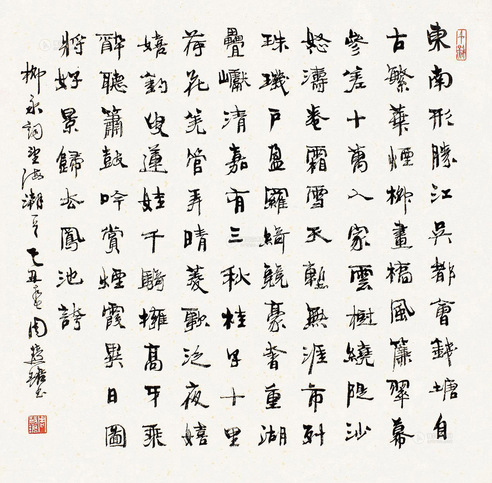 東南形勝江吳都會錢塘自
古繁華煙柳畫橋風簾翠幕
參差十萬人家雲樹繞隄沙
怒濤卷霜雪天塹無涯市列
珠璣戶盈羅綺競豪奢重湖
疊巘清嘉有三秋桂子十里
荷花羌管弄晴菱歌泛夜嬉
嬉釣叟蓮娃千騎擁高牙乘
醉聽簫鼓吟賞煙霞異日圖
將好景歸去鳳池誇
柳永詞望海潮 乙丑 周慧珺书